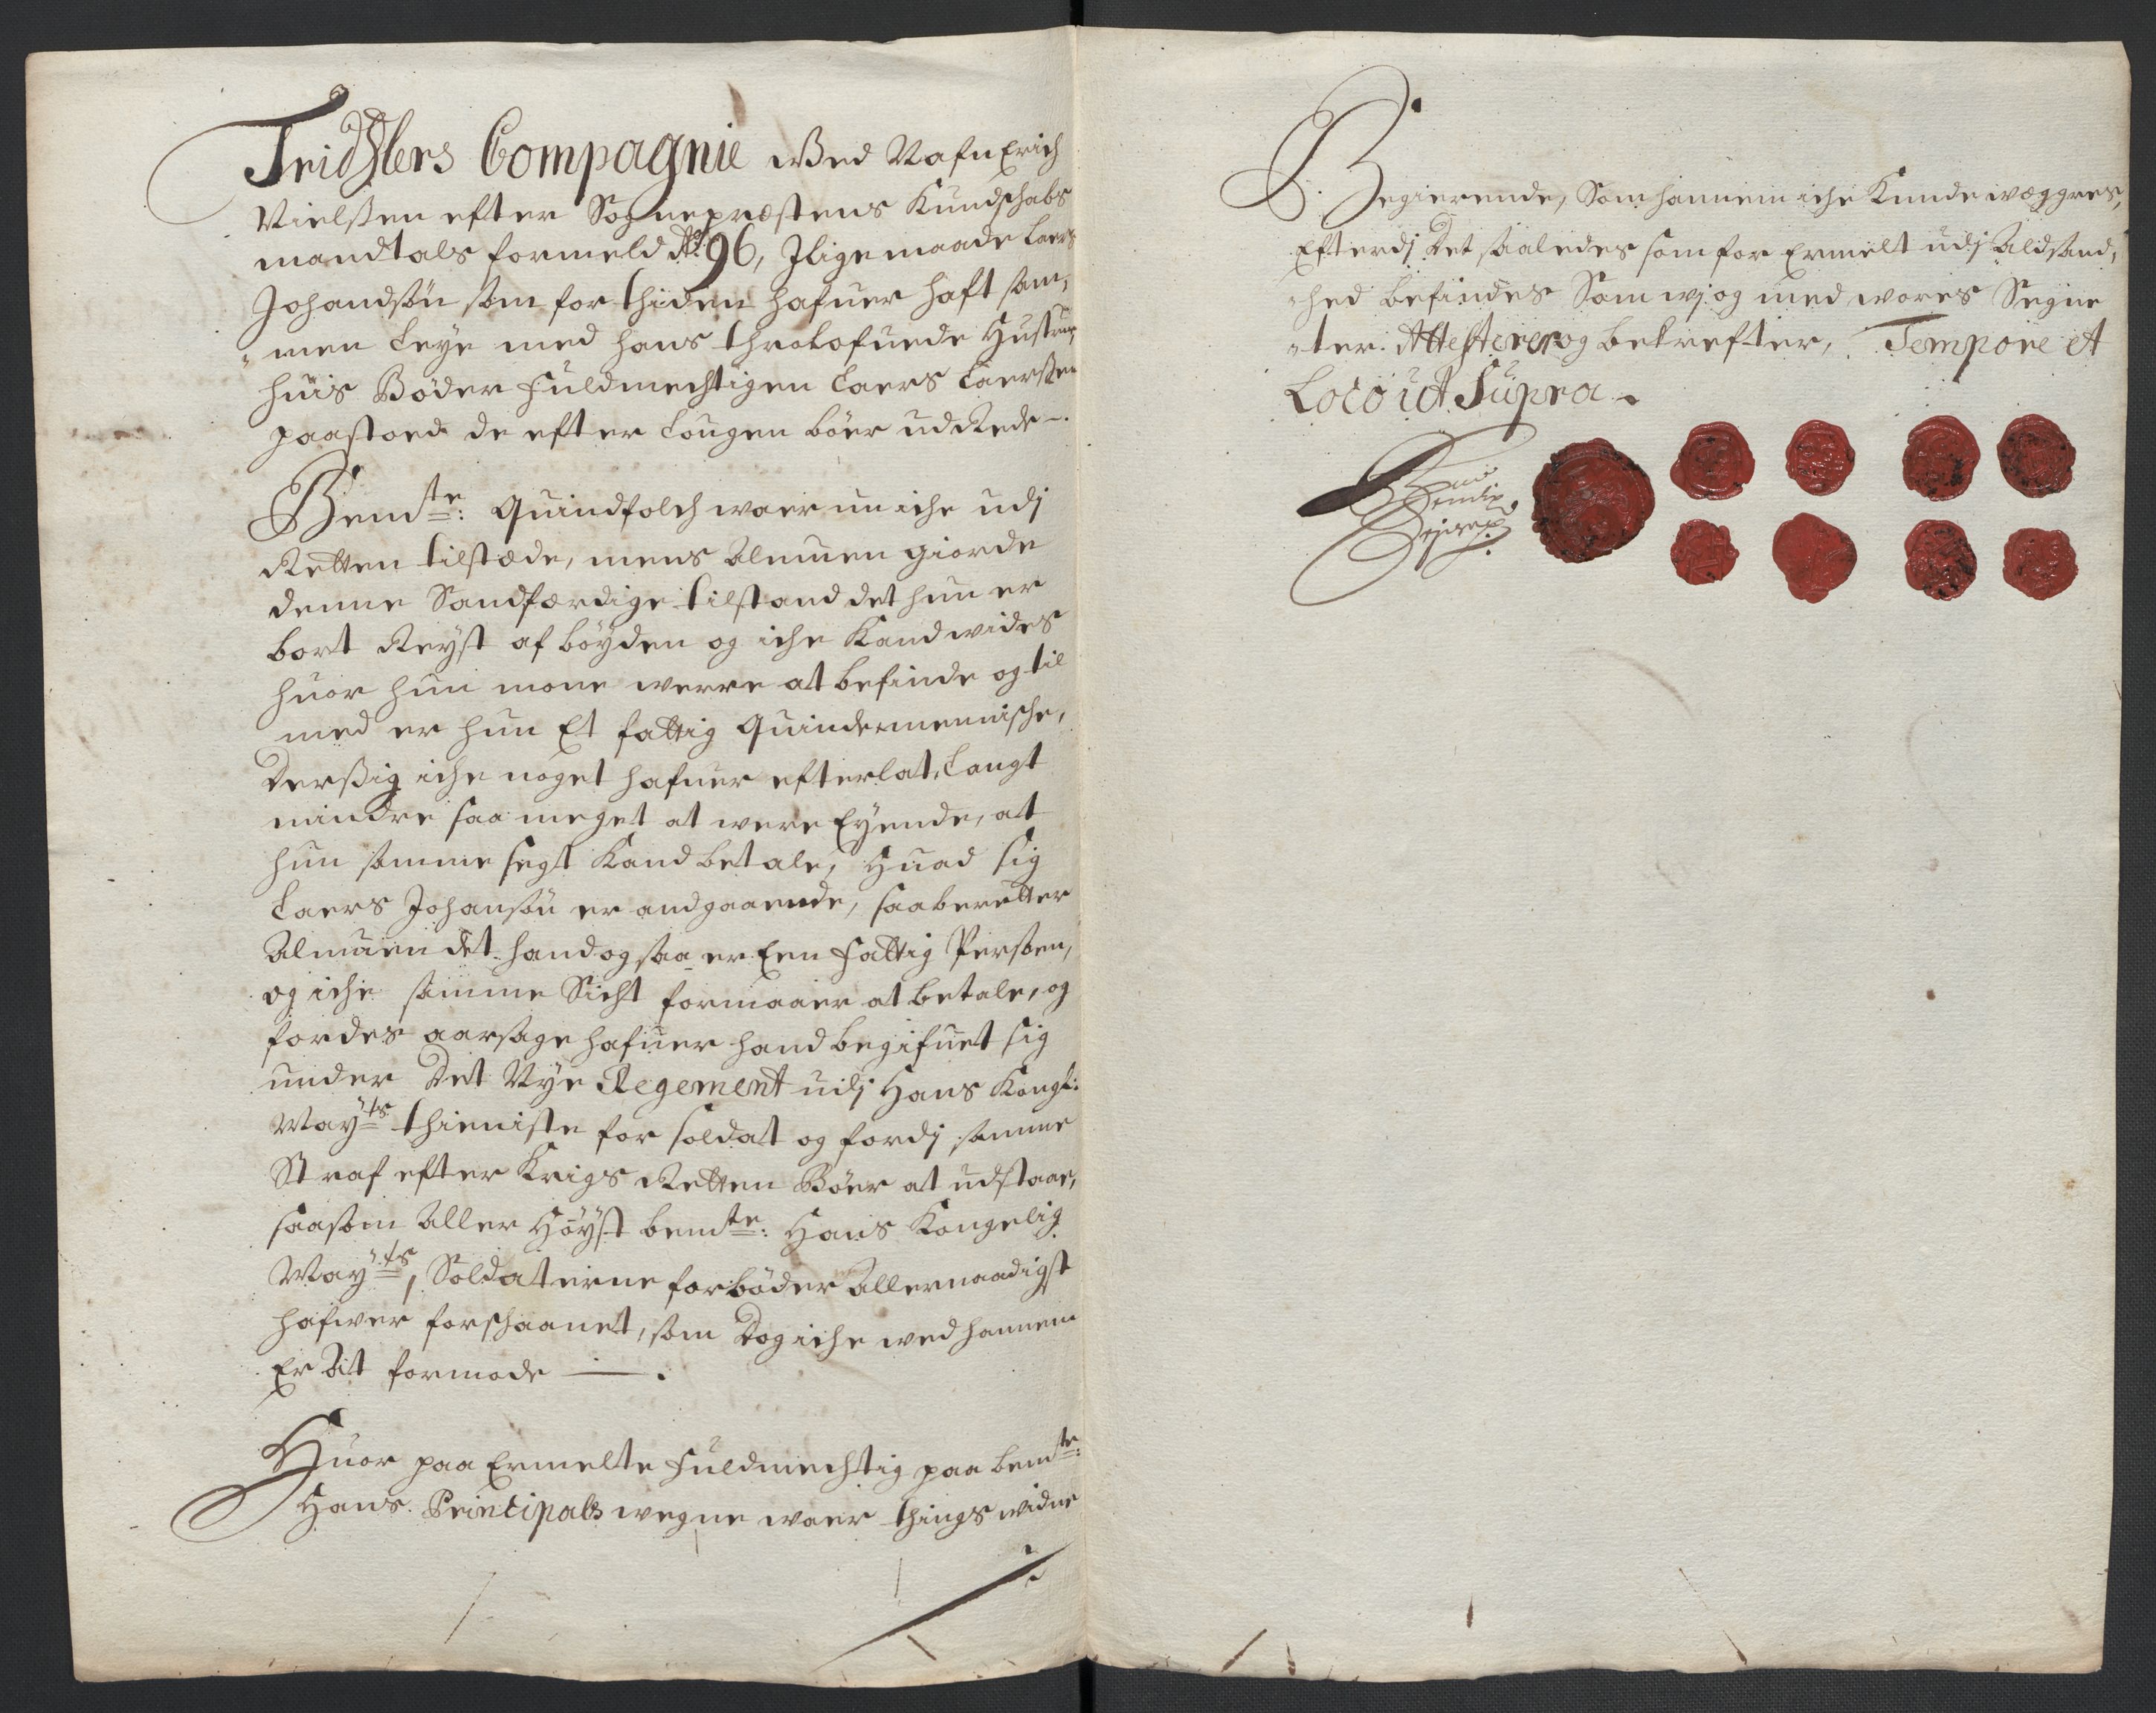 Tridßlers Compagnie Wed Nafn Erich
Nielßen efter Sognepræstens Kundschabs
mandtals formeld Ao: 96, Jligemaade Laers
Johandsøn som for thiden hafuer haft sam„
„men Leye med hans throlofuede Hustrue,
huis Bøder fuldmechtigen Laers Laersen
paastoed de efter Lougen bør udRede -.
Bemte: Quindfolch waer nu iche udj
Retten tilstæde, mens Almuen giorde
denne Sandfærdige tilstand det hun er
bort Reyst af böyden og iche Kand wides
huor hun mone werre at befinde og til
med er hun Et fattig Quindemennische,
der sig iche noget hafuer efterlat, Langt
mindre saa meget at were Eyende, at
hun samme segt Kand betale, Huad sig
Laers Johansøn er andgaaende, saa beretter
Almuen det hand ogsaa er Een fattig Person,
og iche samme Sicht formaaer at betale, og
fordes aarsage hafuer hand begifuet sig
under Det Nye Regement udj Hans Kongl:
Mayts thieniste for soldat og fordj samme
Straf efter Krigs Retten Bøer at udstaae,
saasom Aller Höyst bemte: Hans Kongelig
Mayts, Soldaterne for bøder Allernaadigst
hafwer forschaanet, som Dog iche wed hannem
Er At formode —.
Huor paa Ermelte fuldmechtig paa bemte:
Hans Principals wegne waer things widne
Begierende, Som hannem iche Kunde wæggres,
Efterdj Det saaledes som for Ermelt udj Aldsand„
„hed befindes Som wj og med wores Segne
„ter Attesterer og bekrefter, Tempore et
Loco ut Supra.